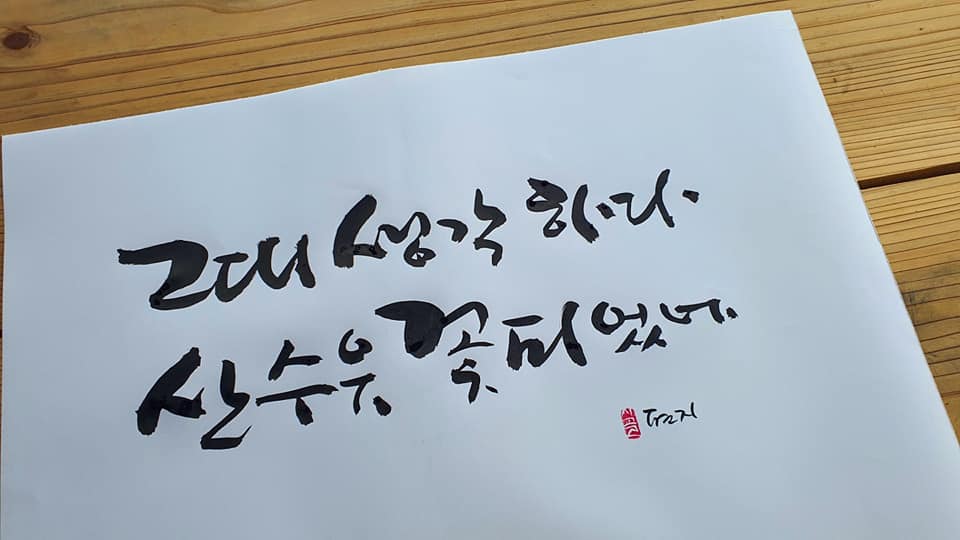 그대 생각 하다
산수유 꽃 피었네